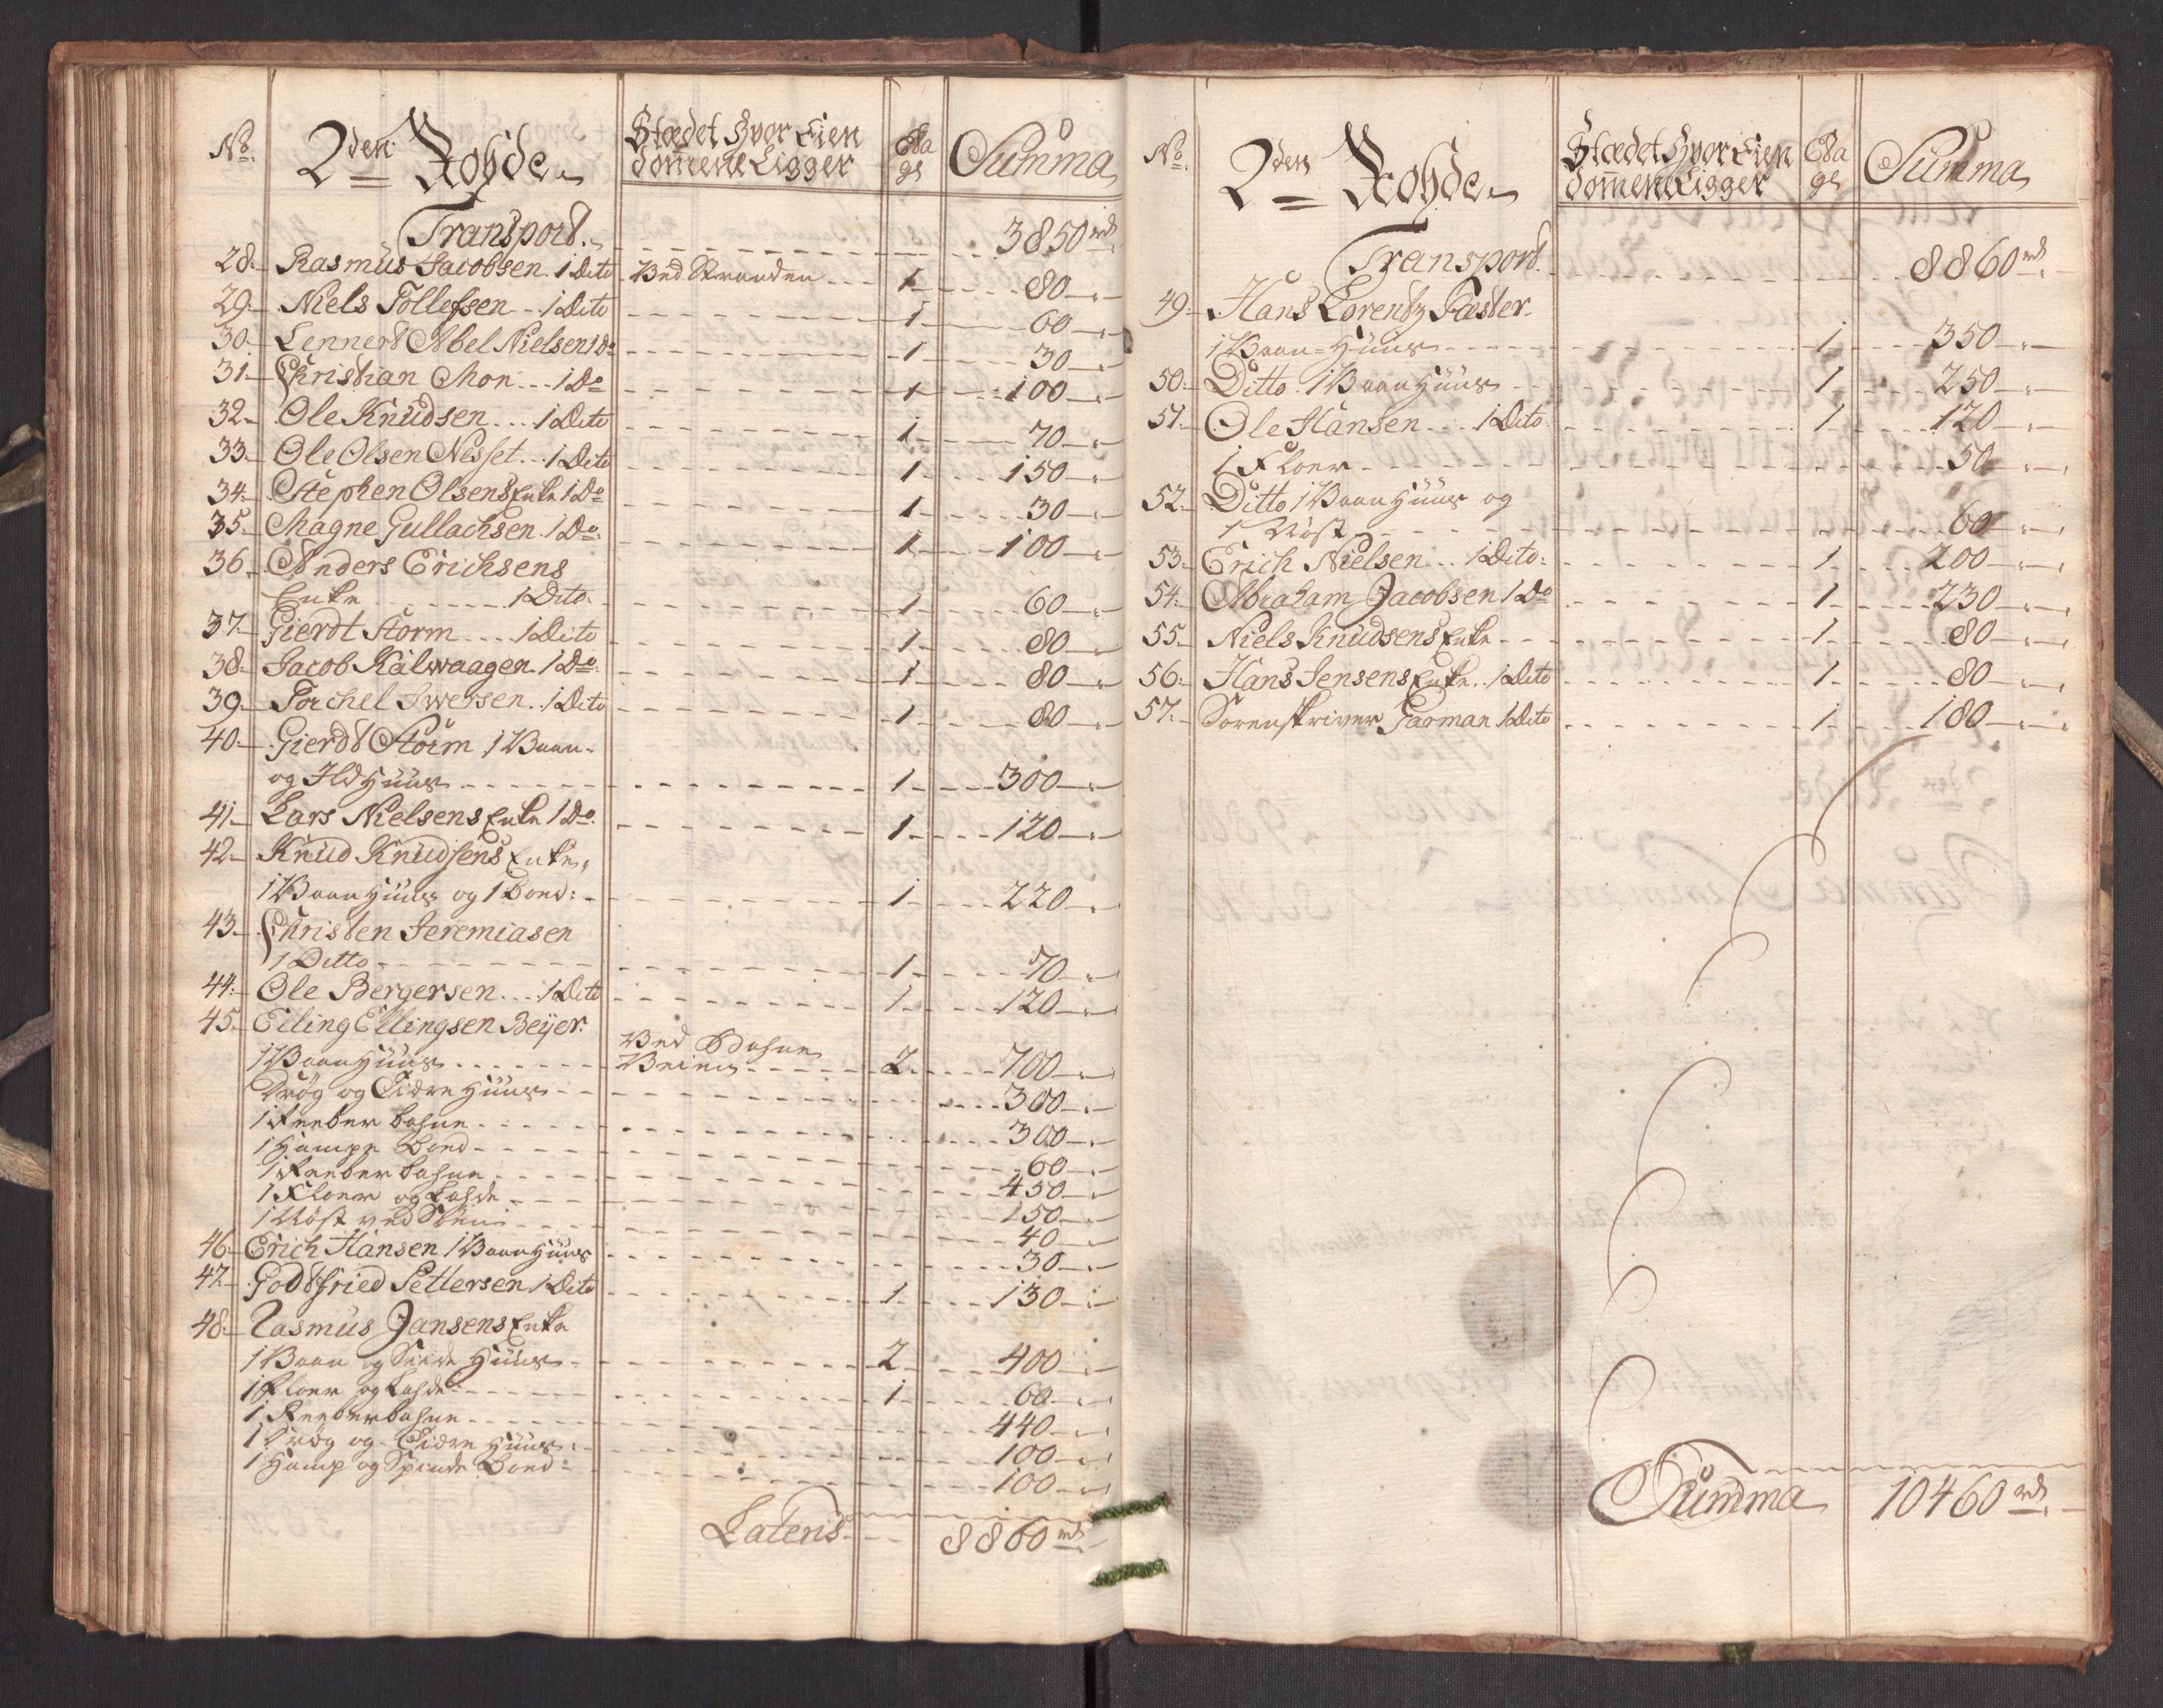 No.
2den Rohde
Stædet Hvor Eien
domene Ligger
Eta
ge
Summa
Transport. 3850 rd
28. Rasmus Jacobsen. 1 Dito Ved Stranden 1 80
29. Niels Tollefsen 1 Dito 1 60
30. Lennert Abel Nielsen 1 Do 1 30
31. Christian Mon 1 Do 1 100
32. Ole Knudsen 1 Dito 1 70
33. Ole Olsen Nesset 1 Dito 1 150
34. Stephen Olsens Enke 1 Do 1 30
35. Magne Gullachsen 1 Do 1 100
36. Anders Erichsens
Enke 1 Dito 1 60
37. Gierdt Storm 1 Dito 1 80
38. Jacob Kalwaagen 1 Do 1 80
39. Torchel Iwersen 1 Dito 1 80
40. Gierdt Storm 1 Vaan-
og Ild Huus 1 300
41. Lars Nielsens Enke 1 Do 1 120
42. Knud Knudsens Enke,
1 Vaan Huus og 1 Boed: 1 220
43. Christen Jeremiasen
1 Ditto 1 70
44. Ole Bergersen 1 Dito 1 120
45. Elling Ellingsen Beyer.
Ved Bahne
1 Vaan Huus Veien 2 700
Drög og Tidre Huus 300
1 Reeber bahne 300
1 Hampe Boed 60
1 Reeber bahne 450
1 Floer og Lahde 150
1 Nöst ved Støen 40
46. Erich Hansen 1 Vaan Huus 30
47. Godtfried Pettersen 1 Dito 1 130
48. Rasmus Jansens Enke
1 Vaan og Huus 2 400
1 Floer og Lahde 1 60
1 Reeberbahne 440
1 Drög og Tidre Huus 100
1 Hamp og Spinde Boed 100
Lateris 8860 rd
No.
2den Rohde
Stædet Hvor Eien
domene Ligger
Eta
ge
Summa
Transport. 8860 rd
49. Hans Lorentz Faster
1 Vaan-Huus 1 350
50. Ditto 1 Vaan Huus 1 250
51. Ole Hansen 1 Dito 1 120
1 Floer 50
52. Ditto 1 Vaan Huus og
1 Nöst 60
53. Erich Nielsen 1 Dito 1 200
54. Abraham Jacobsen 1 Do 1 230
55. Niels Knudsens Enke 1 80
56. Hans Jensens Enke 1 Dito 1 80
57. Sorenskriver Garman 1 Dito 1 180
Summa 10460 rd